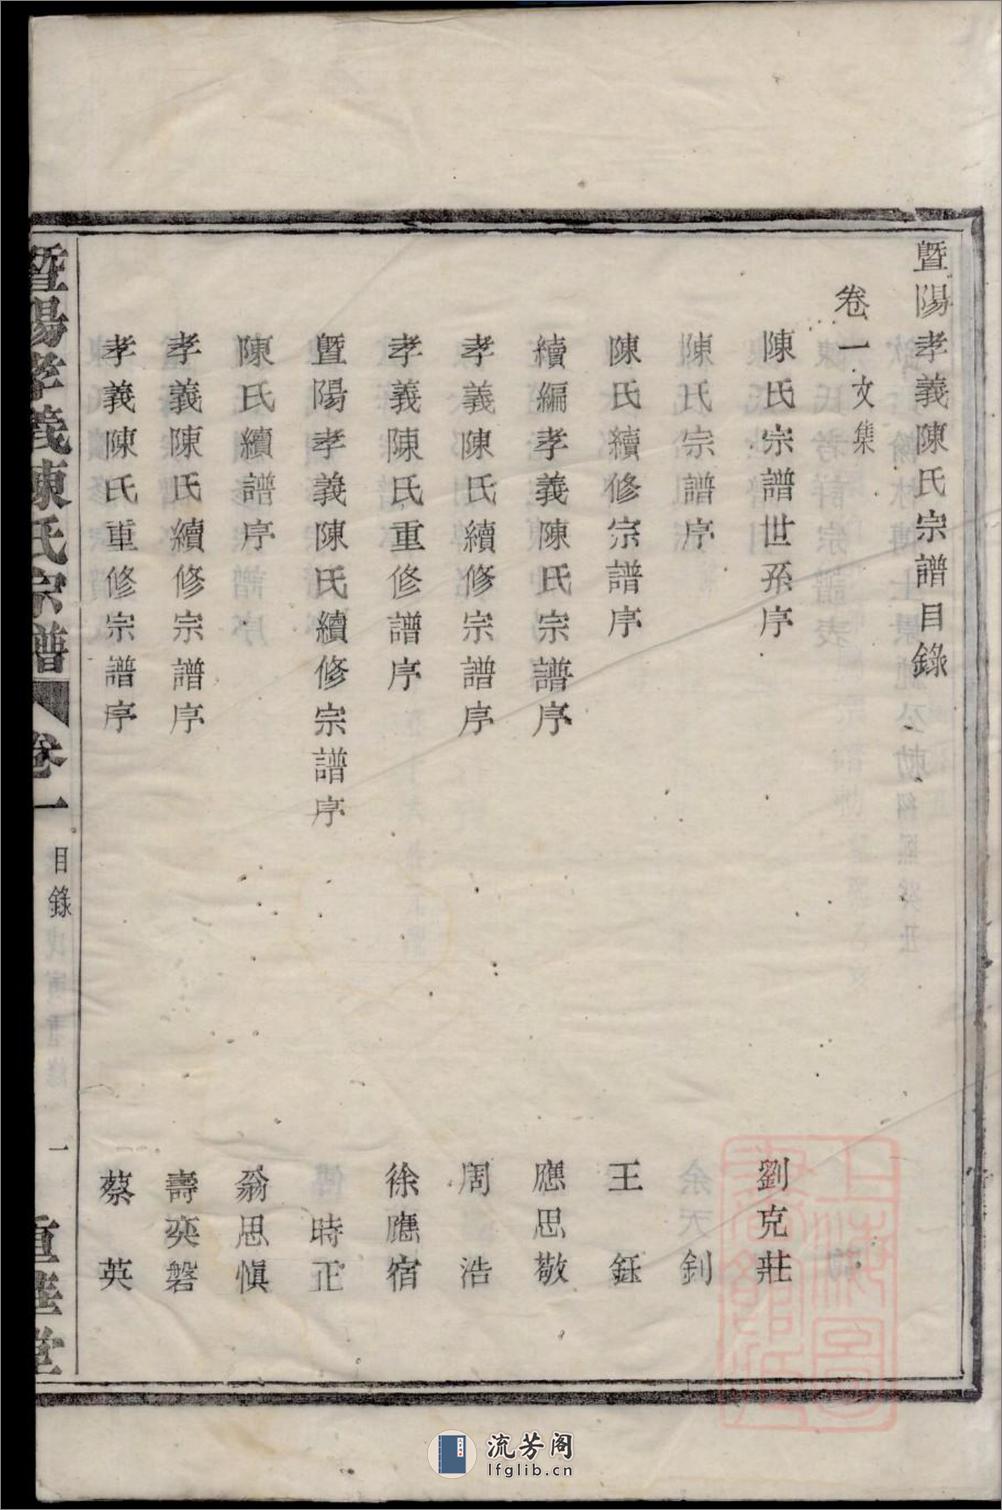 暨陽孝義陳氏宗譜目錄
卷一文集
陳氏宗譜世孫序 劉克莊
陳氏宗譜序 余天釗
陳氏續修宗譜序 王鈺
續編孝義陳氏宗譜序 應思敬
孝義陳氏續修宗譜序 周浩
孝義陳氏重修譜序 徐應宿
暨陽孝義陳氏續修宗譜序 傅時正
陳氏續譜序 翁思慎
孝義陳氏續修宗譜序 壽奕磐
孝義陳氏重修宗譜序 蔡英
暨陽孝義陳氏宗譜 卷一 目錄 一
上海圖書館藏
流芳阁
lfglib.cn